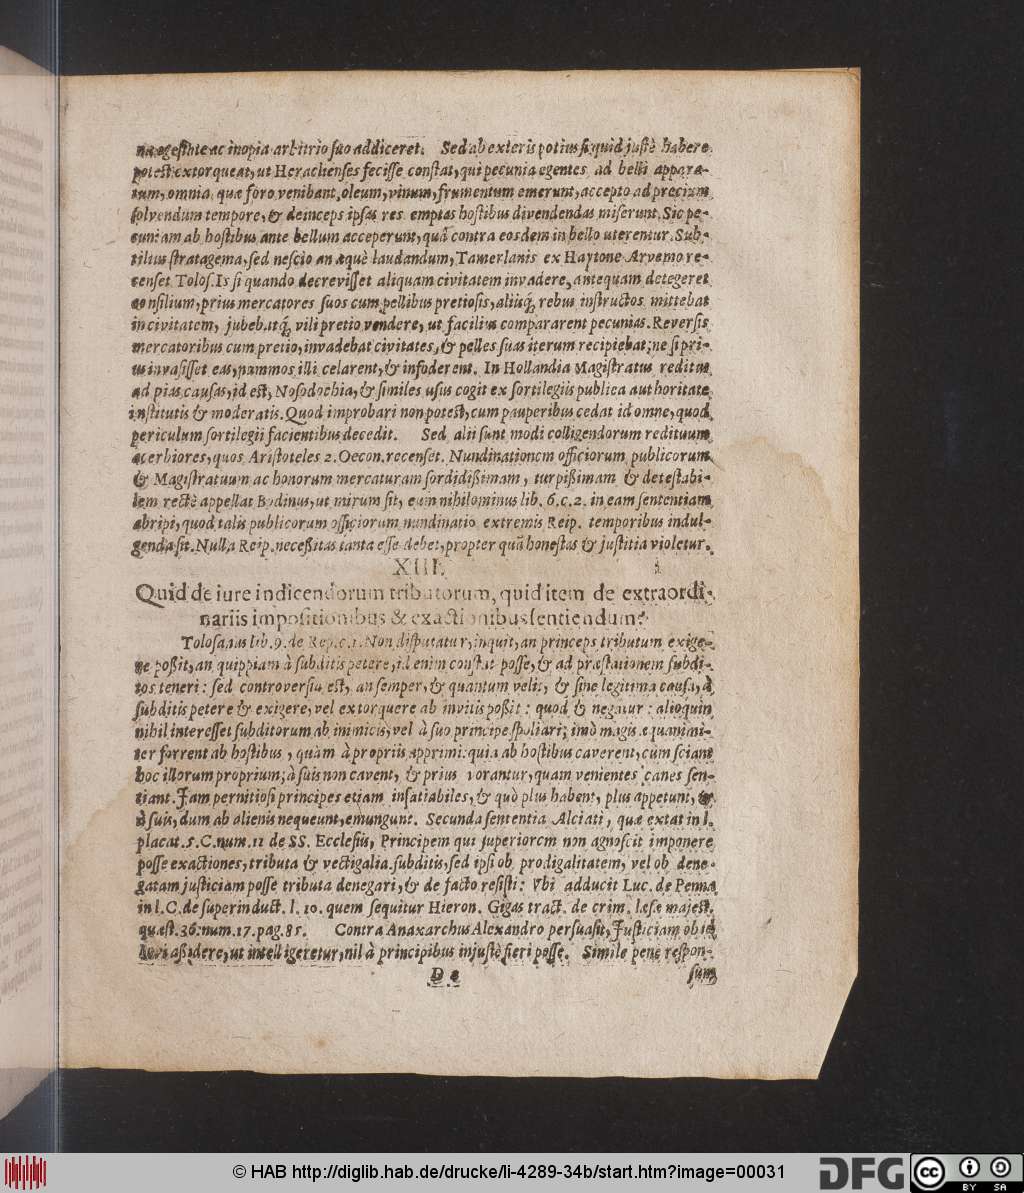 na egestate ac inopia arbitrio suo addiceret. Sed ab exteris potius si quid justè habere
potest extorqueat, ut Heraclienses fecisse constat, qui pecunia egentes ad belli appara-
tum, omnia quæ foro venibant, oleum, vinum, frumentum emerunt, accepto ad precium
solvendum tempore, & deinceps ipsas res emptas hostibus divendendas miserunt. Sic pe-
cuniam ab hostibus ante bellum acceperunt, quâ contra eosdem in bello uterentur. Sub-
tilius stratagema, sed nescio an æquè laudandum, Tamerlanis ex Haytone Arvemo re-
censet Tolos. Is si quando decrevisset aliquam civitatem invadere, antequam detegeret
consilium, prius mercatores suos cum pellibus pretiosis, aliisq; rebus instructos mittebat
in civitatem, jubebatq; vili pretio vendere, ut facilius compararent pecunias. Reversis
mercatoribus cum pretio, invadebat civitates, & pelles suas iterum recipiebat; ne si pri-
us invasisset eas, nummos illi celarent, & infoderent. In Hollandia Magistratus reditus
ad pias causas, id est, Nosodochia, & similes usus cogit ex sortilegiis publica authoritate
institutis & moderatis. Quod improbari non potest, cum pauperibus cedat id omne, quod
periculum sortilegii facientibus decedit. Sed alii sunt modi colligendorum redituum
acerbiores, quos Aristoteles 2. Oecon. recenset. Nundinationem officiorum publicorum
& Magistratuum ac honorum mercaturam sordidißimam, turpißimam & detestabi-
lem rectè appellat Bodinus, ut mirum sit, eum nihilominus lib. 6. c. 2. in eam sententiam
abripi, quod talis publicorum officiorum nundinatio extremis Reip. temporibus indul-
genda sit. Nulla Reip. neceßitas tanta esse debet, propter quã honestas & justitia violetur.
XIII.
Quid de iure indicendorum tributorum, quid item de extraordi-
nariis impositionibus & exactionibus sentiendum?
Tolosanus lib. 9. de Rep. c. 1. Non disputatur, inquit, an princeps tributum exige-
re poßit, an quippiam à subditis petere, id enim constat posse, & ad præstationem subdi-
tos teneri: sed controversia est, an semper, & quantum velit, & sine legitima causa, à
subditis petere & exigere, vel extorquere ab invitis poßit: quod & negatur: alioquin
nihil interesset subditorum ab inimicis, vel à suo principe spoliari; imò magis æquanimi-
ter ferrent ab hostibus, quàm à propriis opprimi: quia ab hostibus caverent, cùm sciant
hoc illorum proprium; à suis non cavent, & prius vorantur, quam venientes canes sen-
tiant. Jam pernitiosi principes etiam insatiabiles, & quò plus habent, plus appetunt, &
à suis, dum ab alienis nequeunt, emungunt. Secunda sententia Alciati, quæ extat in l.
placat. 5. C. num. 11 de SS. Ecclesiis, Principem qui superiorem non agnoscit imponere
posse exactiones, tributa & vectigalia subditis, sed ipsi ob prodigalitatem, vel ob dene-
gatam justiciam posse tributa denegari, & de facto resisti: Vbi adducit Luc. de Penna
in l. C. de superinduct. l. 10. quem sequitur Hieron. Gigas tract. de crim. læsæ majest.
quæst. 36. num. 17. pag. 85. Contra Anaxarchus Alexandro persuasit, Justiciam ob id
Iovi aßidere, ut intelligeretur, nil à principibus injustè fieri posse. Simile penè respon-
D 2
sum
© HAB http://diglib.hab.de/drucke/li-4289-34b/start.htm?image=00031
DFG
cc BY SA